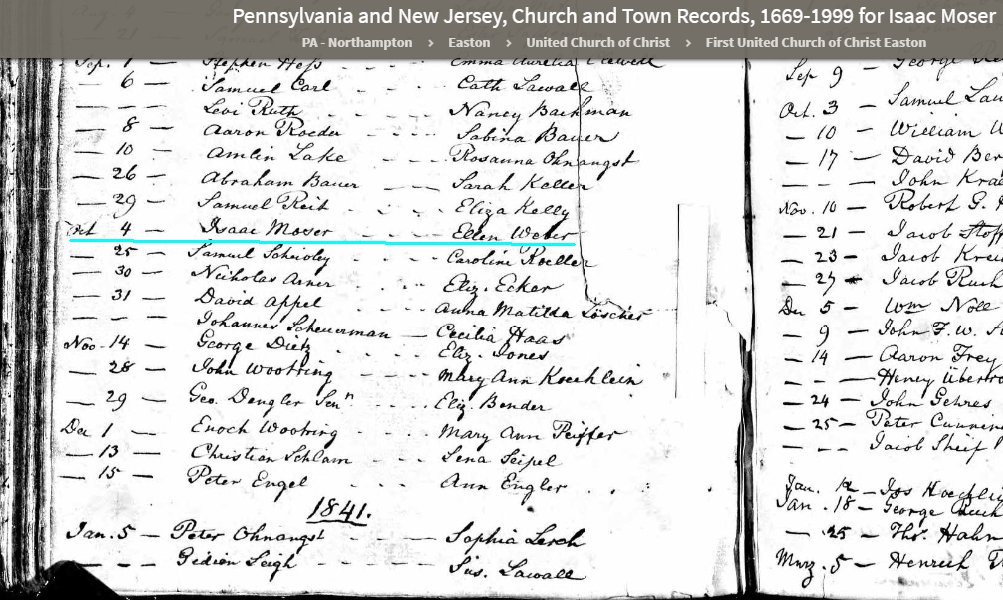 Pennsylvania and New Jersey, Church and Town Records, 1669-1999 for Isaac Moser
PA - Northampton > Easton > United Church of Christ > First United Church of Christ Easton
Sep. 1 — Stephen Hess - - - Emma Aurelia
— 6 — Samuel Carl - - - Cath Lawall
— — — Levi Ruth - - - Nancy Bachman
— 8 — Aaron Roeder - - - Sabina Bauer
— 10 — Amlin Lake - - - Rosanna Ohnangst
— 26 — Abraham Bauer - - - Sarah Keller
— 29 — Samuel Reit - - - Eliza Kelly
Oct 4 — Isaac Moser - - - Ellen Weber
— 25 — Samuel - - - Caroline Koeller
— 30 — Nicholas Arner - - - Eliz. Ecker
— 31 — David Appel - - - Anna Matilda Löscher
— — — Johannes Scheuerman — Cecilia Haas
Nov. 14 — George Dietz - - - Eliz. Jones
— 28 — John Wootring - - - Mary Ann Koechlein
— 29 — Geo. Dengler Senr - - - Eliz. Bender
Dec 1 — Enoch Wootring - - - Mary Ann Peiffer
— 13 — Christian Schlam - - - Lena Seipel
— 15 — Peter Engel - - - Ann Engler
1841.
Jan. 5 — Peter Ohnangst - - - Sophia Lerch
— — — Gideon Seigh - - - Sus. Lawall
George
Sep 9
Oct. 3 — Samuel
— 10 — William W
— 17 — David Ber
— — — John Kra
Nov. 10 — Robert G.
— 21 — Jacob
— 23 — Jacob
— 27 — Jacob Rush
Dec 5 — Wm Noll
— 9 — John F. W.
— 14 — Aaron Frey
— — — Henry
— 24 — John Gehres
— 25 — Peter
— — — Jacob Sheif
Jan. 12 — Jos
Jan. 18 — George
— 25 — Ths. Hahn
Mrz. 5 — Henrich